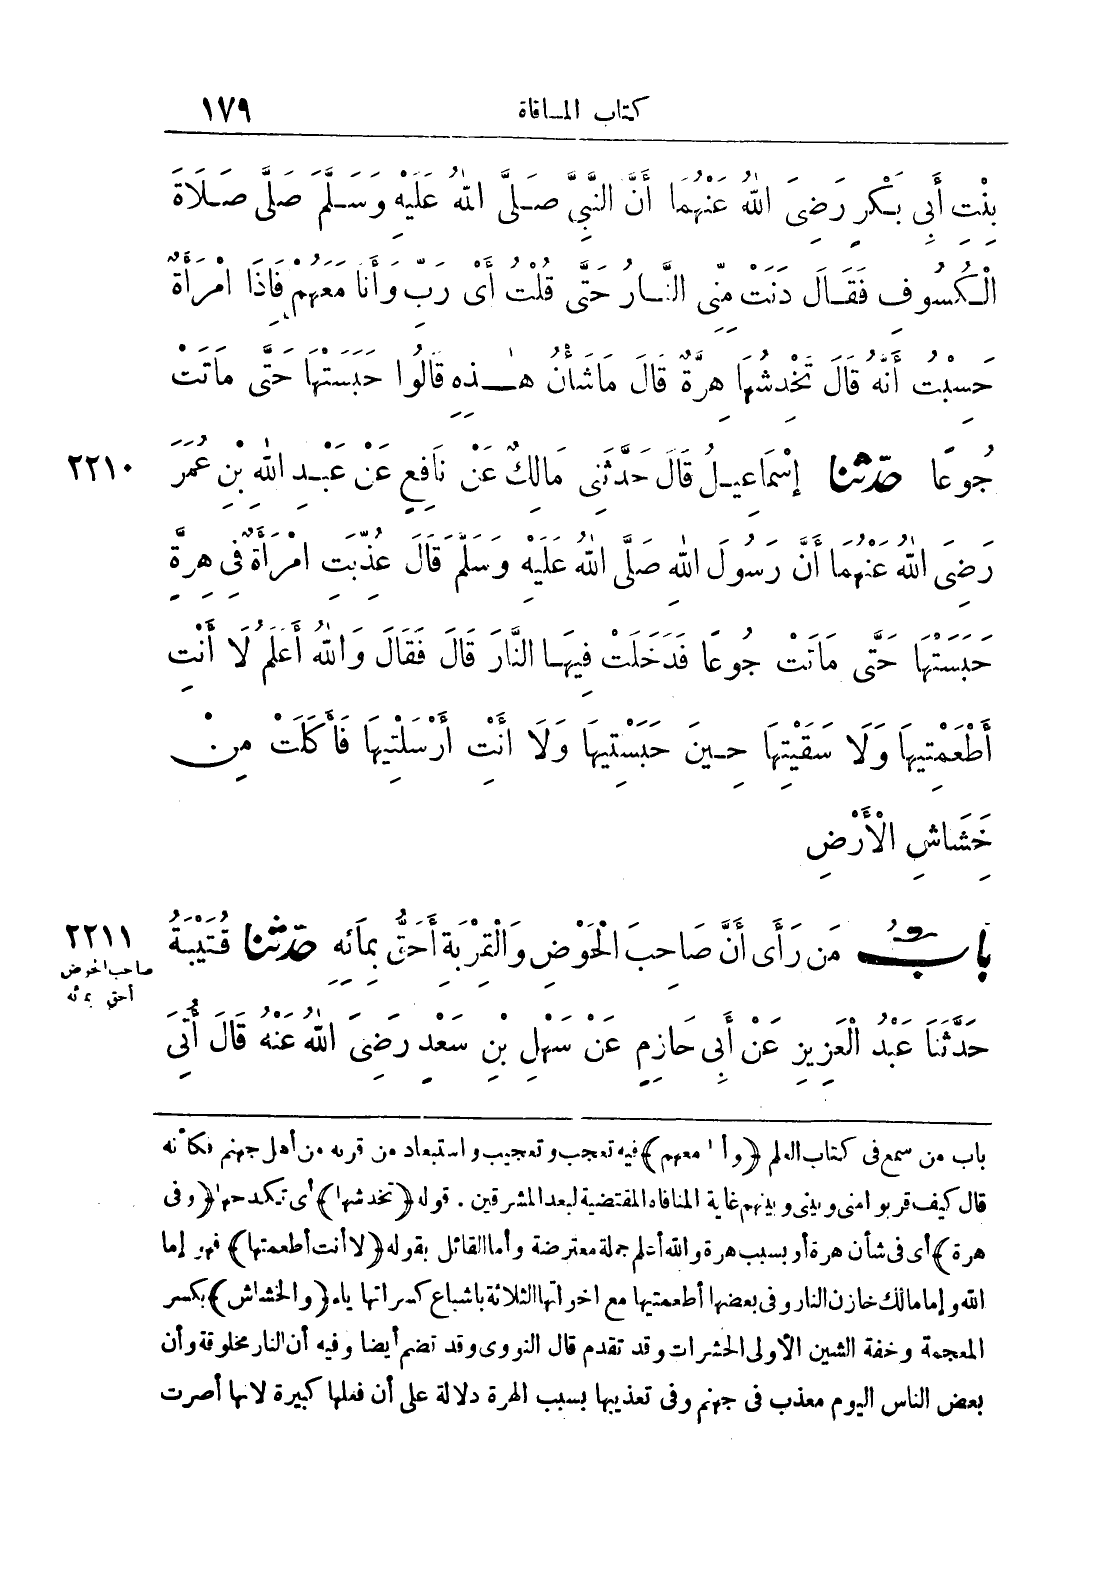 كتاب المساقاة ١٧٩
بِنْتِ أَبِي بَكْرٍ رَضِيَ اللهُ عَنْهُمَا أَنَّ النَّبِيَّ صَلَّى اللهُ عَلَيْهِ وَسَلَّمَ صَلَّى صَلَاةَ
الْكُسُوفِ فَقَالَ دَنَتْ مِنِّي النَّارُ حَتَّى قُلْتُ أَىْ رَبِّ وَأَنَا مَعَهُمْ فَإِذَا امْرَأَةٌ
حَسِبْتُ أَنَّهُ قَالَ تَخْدِشُهَا هِرَّةٌ قَالَ مَا شَأْنُ هٰذِهِ قَالُوا حَبَسَتْهَا حَتَّى مَاتَتْ
جُوعًا حَدَّثَنَا إِسْمَاعِيلُ قَالَ حَدَّثَنِي مَالِكٌ عَنْ نَافِعٍ عَنْ عَبْدِ اللهِ بْنِ عُمَرَ ٢٢١٠
رَضِيَ اللهُ عَنْهُمَا أَنَّ رَسُولَ اللهِ صَلَّى اللهُ عَلَيْهِ وَسَلَّمَ قَالَ عُذِّبَتِ امْرَأَةٌ فِي هِرَّةٍ
حَبَسَتْهَا حَتَّى مَاتَتْ جُوعًا فَدَخَلَتْ فِيهَا النَّارَ قَالَ فَقَالَ وَاللهُ أَعْلَمُ لَا أَنْتِ
أَطْعَمْتِيهَا وَلَا سَقَيْتِهَا حِينَ حَبَسْتِيهَا وَلَا أَنْتِ أَرْسَلْتِيهَا فَأَكَلَتْ مِنْ
خَشَاشِ الْأَرْضِ
بَابُ مَن رَأَى أَنَّ صَاحِبَ الْحَوْضِ وَالْقِرْبَةِ أَحَقُّ بِمَائِهِ حَدَّثَنَا قُتَيْبَةُ ٢٢١١
صاحب الحوض
أحق بمائه
حَدَّثَنَا عَبْدُ الْعَزِيزِ عَنْ أَبِي حَازِمٍ عَنْ سَهْلِ بْنِ سَعْدٍ رَضِيَ اللهُ عَنْهُ قَالَ أُتِيَ
باب من سمع فى كتاب العلم ﴿وأنا معهم﴾ فيه تعجب وتعجيب واستبعاد من قربه من أهل جهنم فكأنه
قال كيف قربوا منى وبينى وبينهم غاية المنافاة المقتضية لبعد المشرقين . قوله ﴿تخدشها﴾ أى تكدحها ﴿وفى
هرة﴾ أى فى شأن هرة أو بسبب هرة والله أعلم جملة معترضة وأما القائل بقوله ﴿لا أنت أطعمتها﴾ فهو إما
الله وإما مالك خازن النار وفى بعضها أطعمتيها مع اخواتها الثلاثة باشباع كسراتها ياء ﴿والخشاش﴾ بكسر
المعجمة وخفة الشين الأولى الحشرات وقد تقدم قال النووى وقد تضم أيضا وفيه أن النار مخلوقة وأن
بعض الناس اليوم معذب فى جهنم وفى تعذيبها بسبب الهرة دلالة على أن فعلها كبيرة لانها أصرت